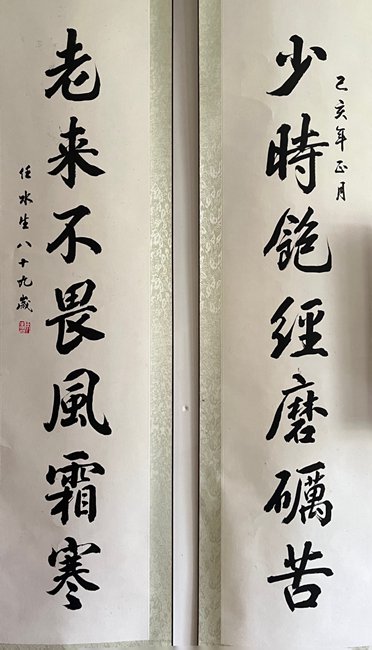 己亥年正月
少時飽經磨礪苦
老来不畏風霜寒
任水生八十九歲